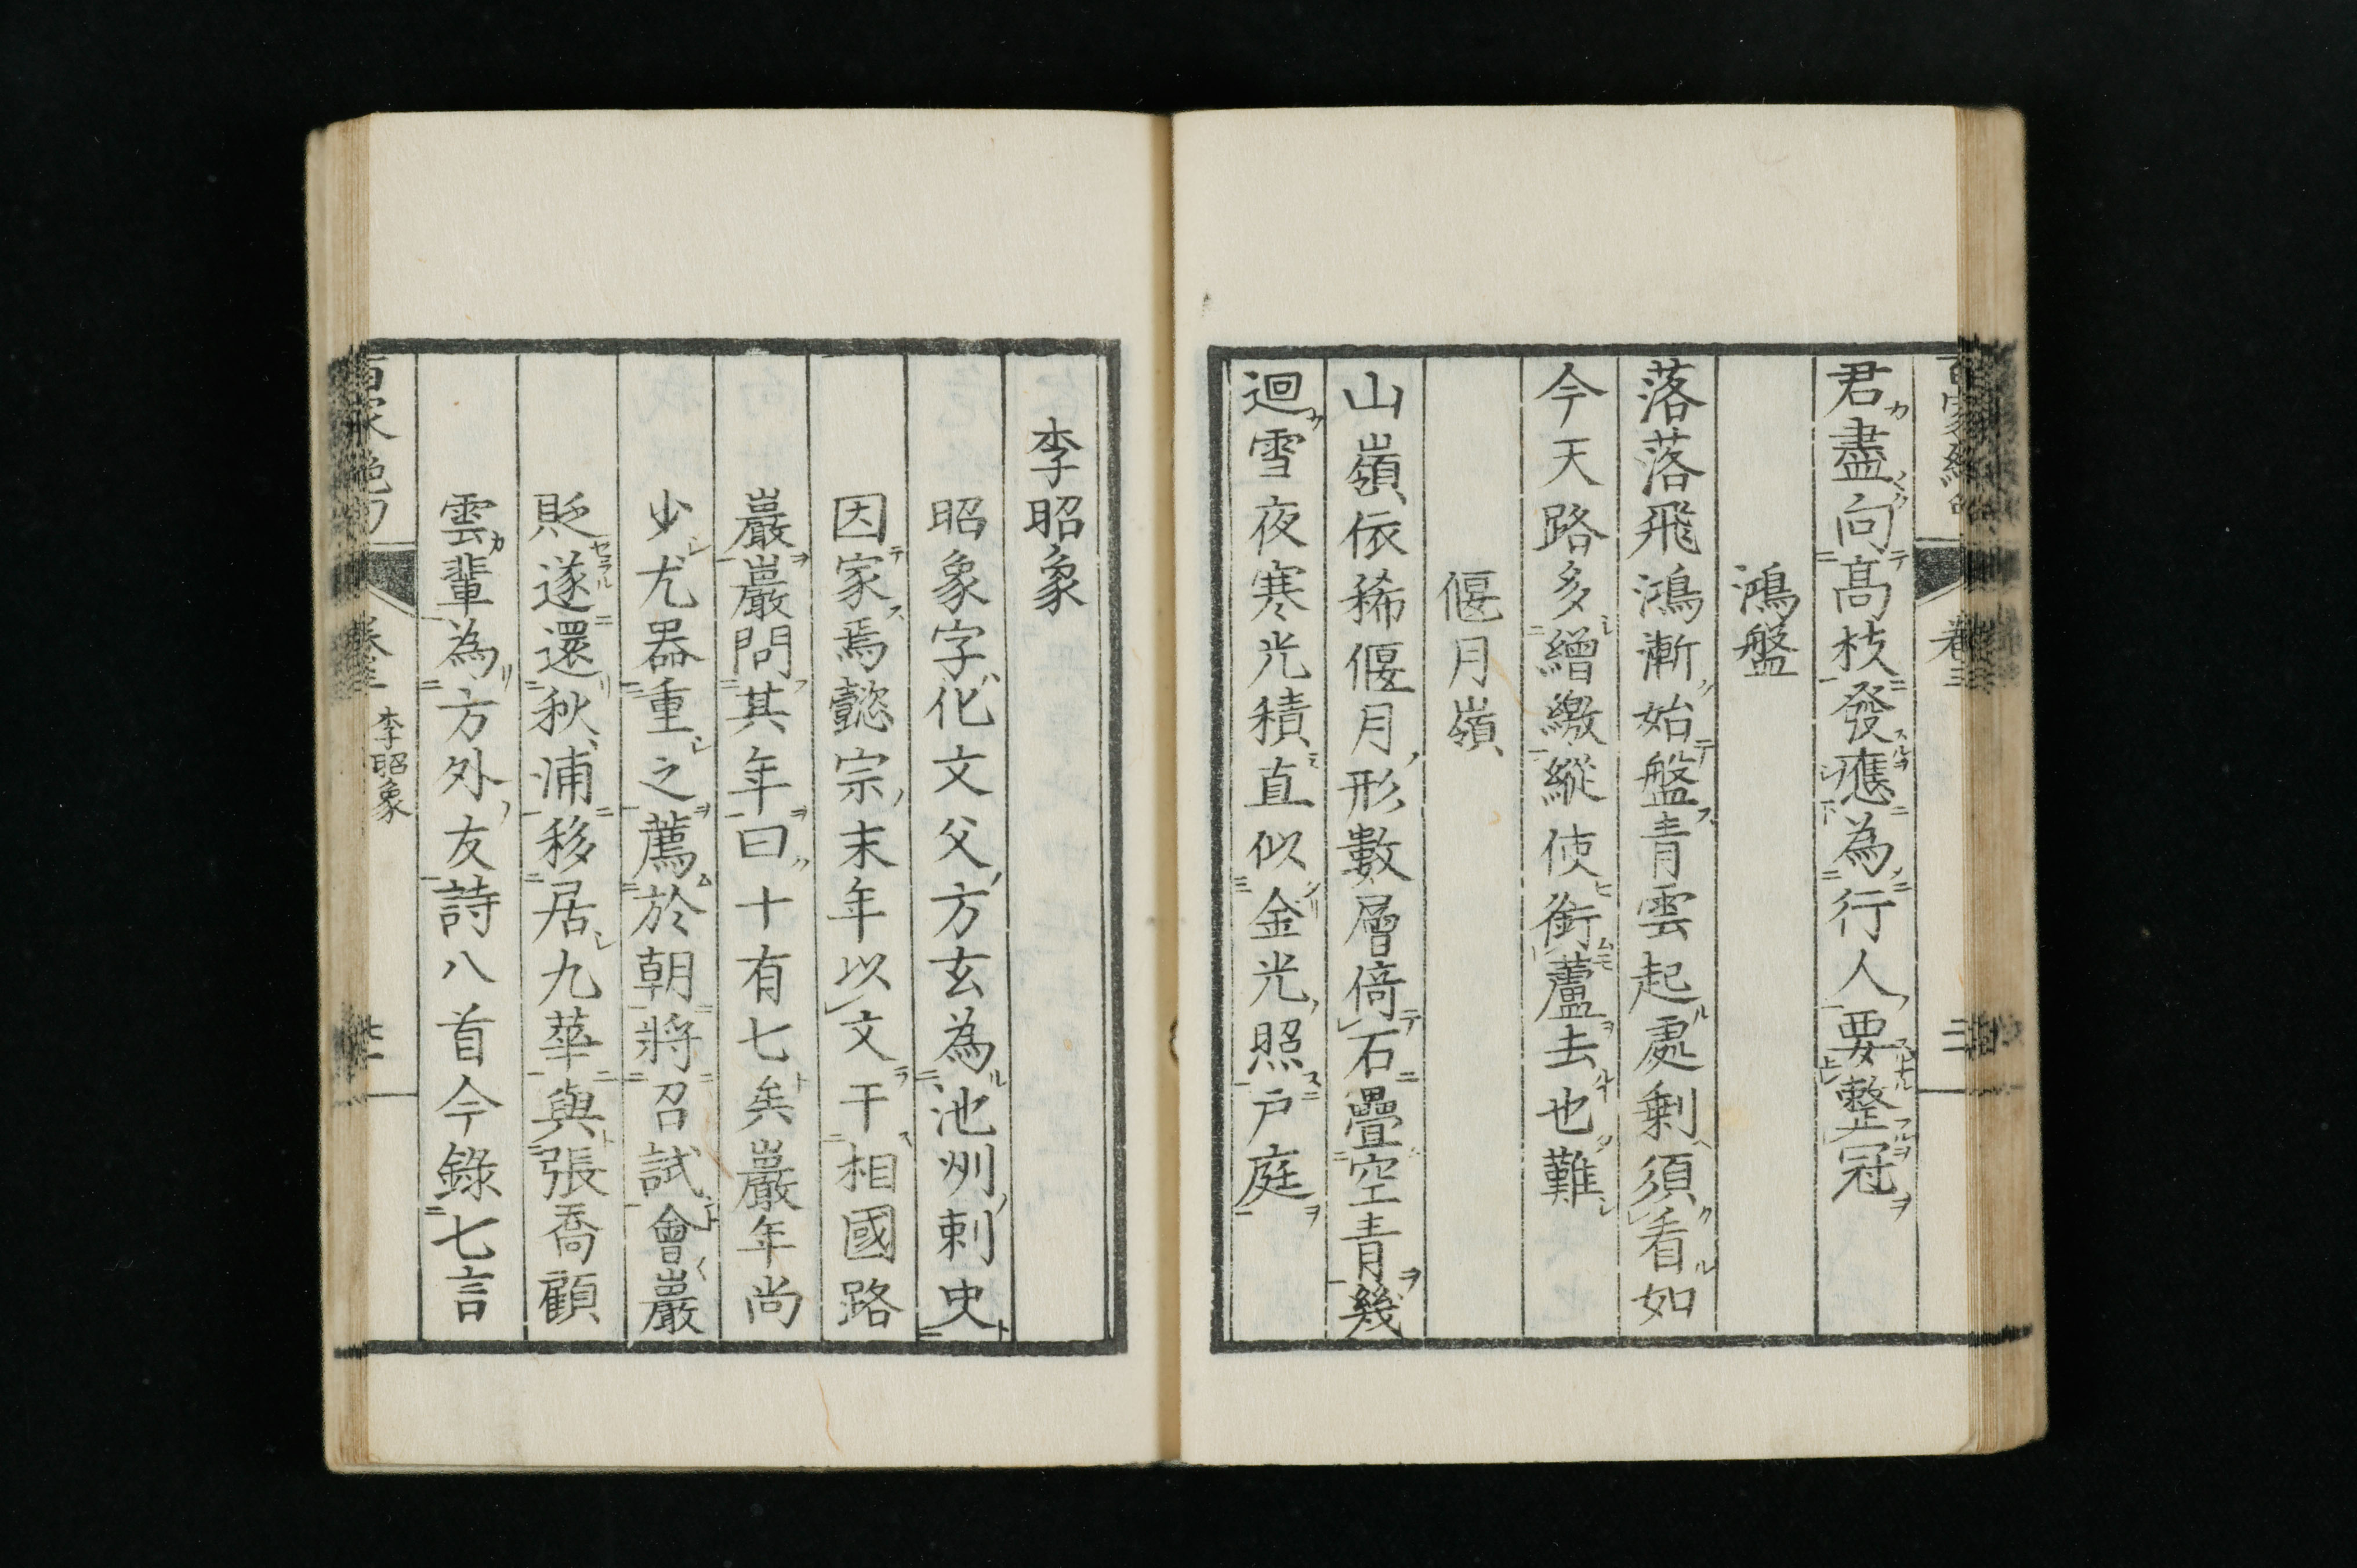 君盡向髙枝發應為行人要整冠
鴻盤
落落飛鴻漸始盤青雲起處剰須看如
今天路多繒繳縱使銜蘆去也難
偃月嶺
山嶺依稀偃月形數層倚石疊空青幾
迴雪夜寒光積直似金光照戸庭
李昭象
昭象字化文父方玄為池州刺史
因家焉懿宗末年以文干相國路
巖巖問其年曰十有七矣巖年尚
少尤器重之薦於朝將召試會巖
貶遂還秋浦移居九華與張喬顧
雲輩為方外友詩八首今錄七言
李昭象